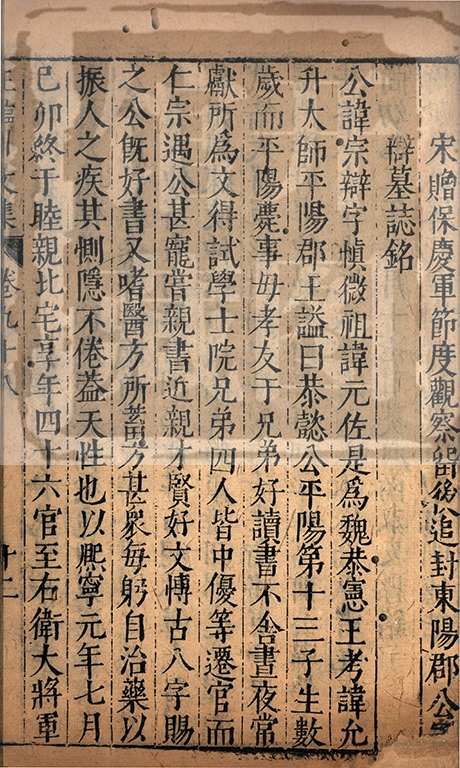 宋贈保慶軍節度觀察留後追封東陽郡公宗
辯墓誌銘
公諱宗辯字慎微祖諱元佐是為魏恭憲王考諱允
升太師平陽郡王謚曰恭懿公平陽第十三子生數
歲而平陽薨事母孝友于兄弟好讀書不舍晝夜常
獻所為文得試學士院兄弟四人皆中優等遷官而
仁宗遇公甚寵嘗親書近親才賢好文博古八字賜
之公既好書又嗜醫方所蓄異方甚衆每躬自治藥以
振人之疾其惻隱不倦蓋天性也以熙寧元年七月
己卯終于睦親北宅享年四十六官至右衛大將軍
王臨川文集 卷九十八 十二